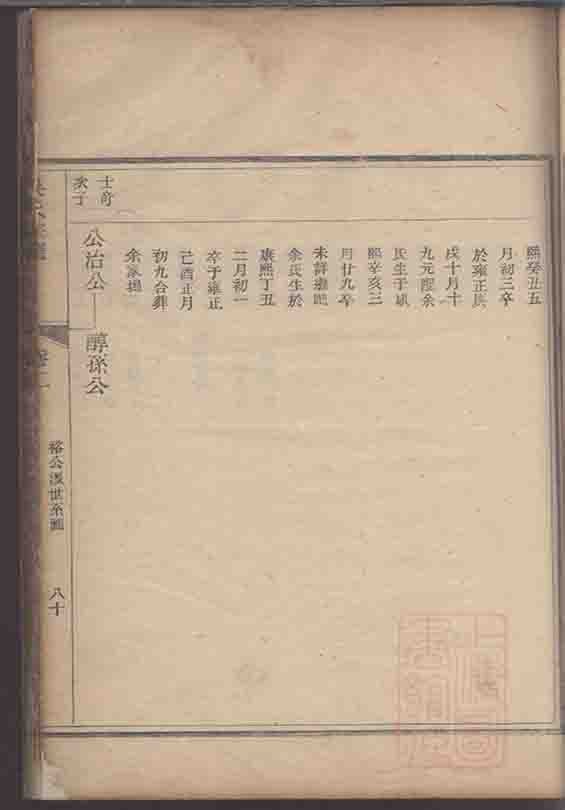 熙癸丑五
月初三卒
於雍正庚
戌十月十
九元配余
氏生于康
熙辛亥三
月廿九卒
未詳繼配
余氏生於
康熙丁丑
二月初一
卒于雍正
己酉正月
初九合葬
余家
士奇
次子
公治公 醇孫公
卷二
裕公後世系圖
八十
上海圖書館藏